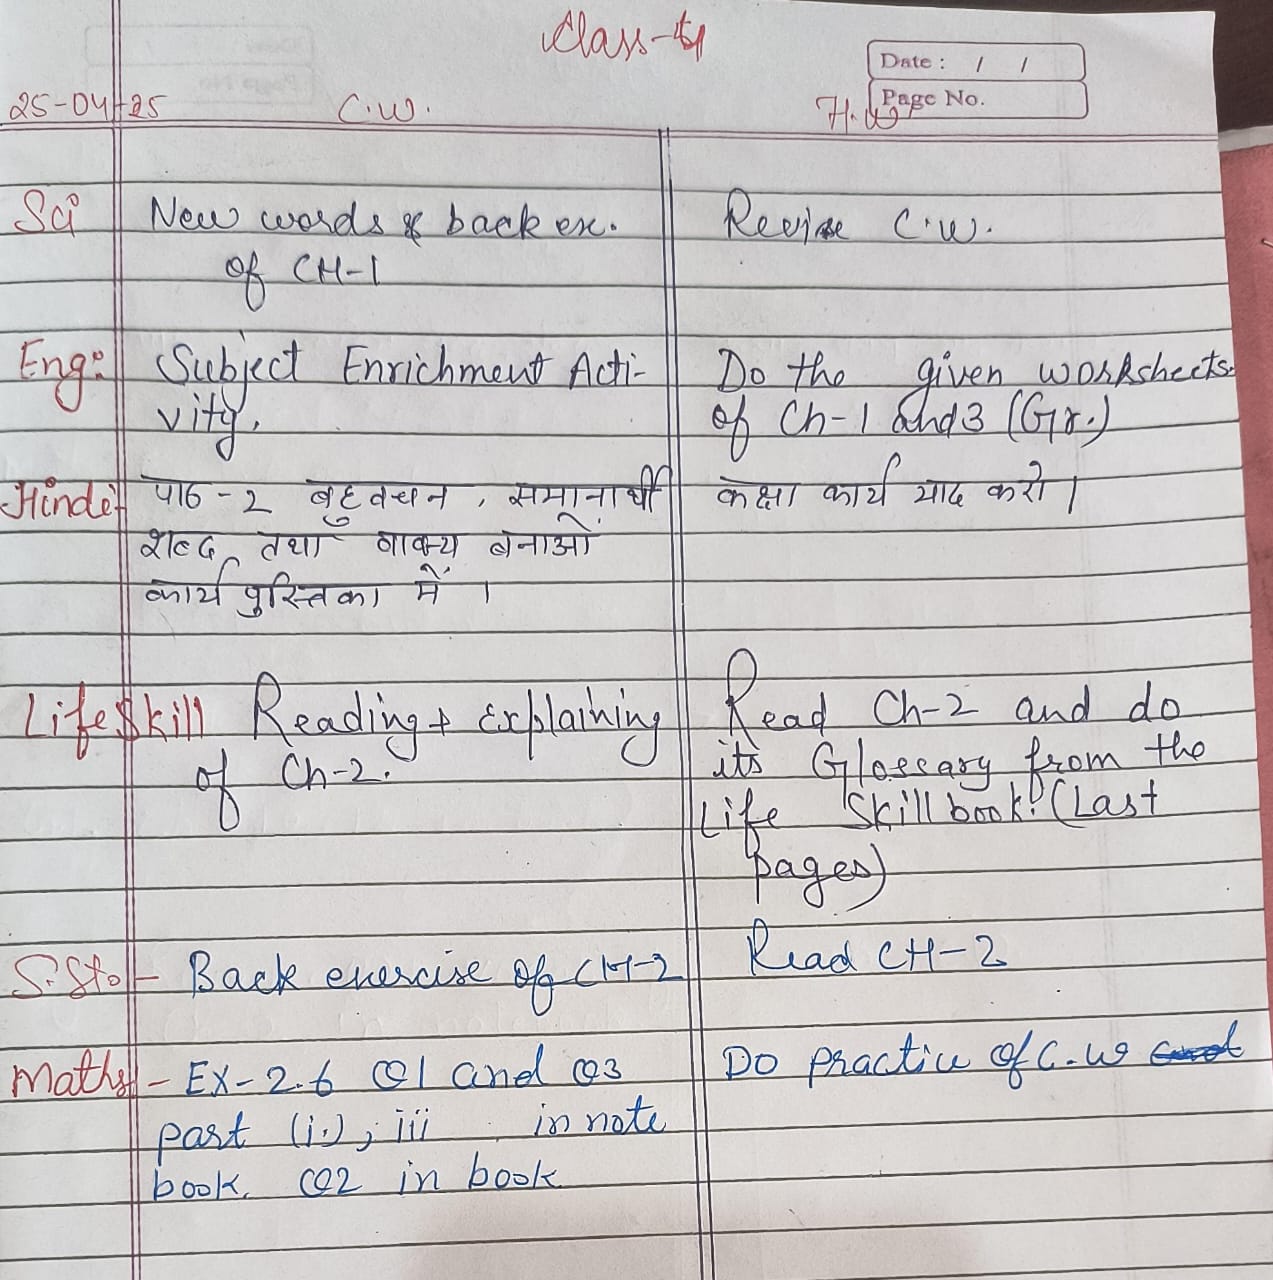 Class-4
Date : / /
Page No.
25-04-25 C.W. H.W
Sci New words & back ex. Revise C.W.
of CH-1
Eng: Subject Enrichment Acti- Do the given worksheets.
vity. of Ch-1 and 3 (Gr.)
Hindi पाठ-2 बहुवचन, समानार्थी कक्षा कार्य याद करो।
शब्द तथा वाक्य बनाओं
कार्य पुस्तिका में।
Life Skill Reading + Explaining Read Ch-2 and do
of Ch-2. its Glossary from the
Life Skill book. (Last
pages)
S.St. - Back exercise of CH-2 Read CH-2
Maths - EX-2.6 Q1 and Q3 Do practice of C.W
part (i.), iii in note
book. Q2 in book